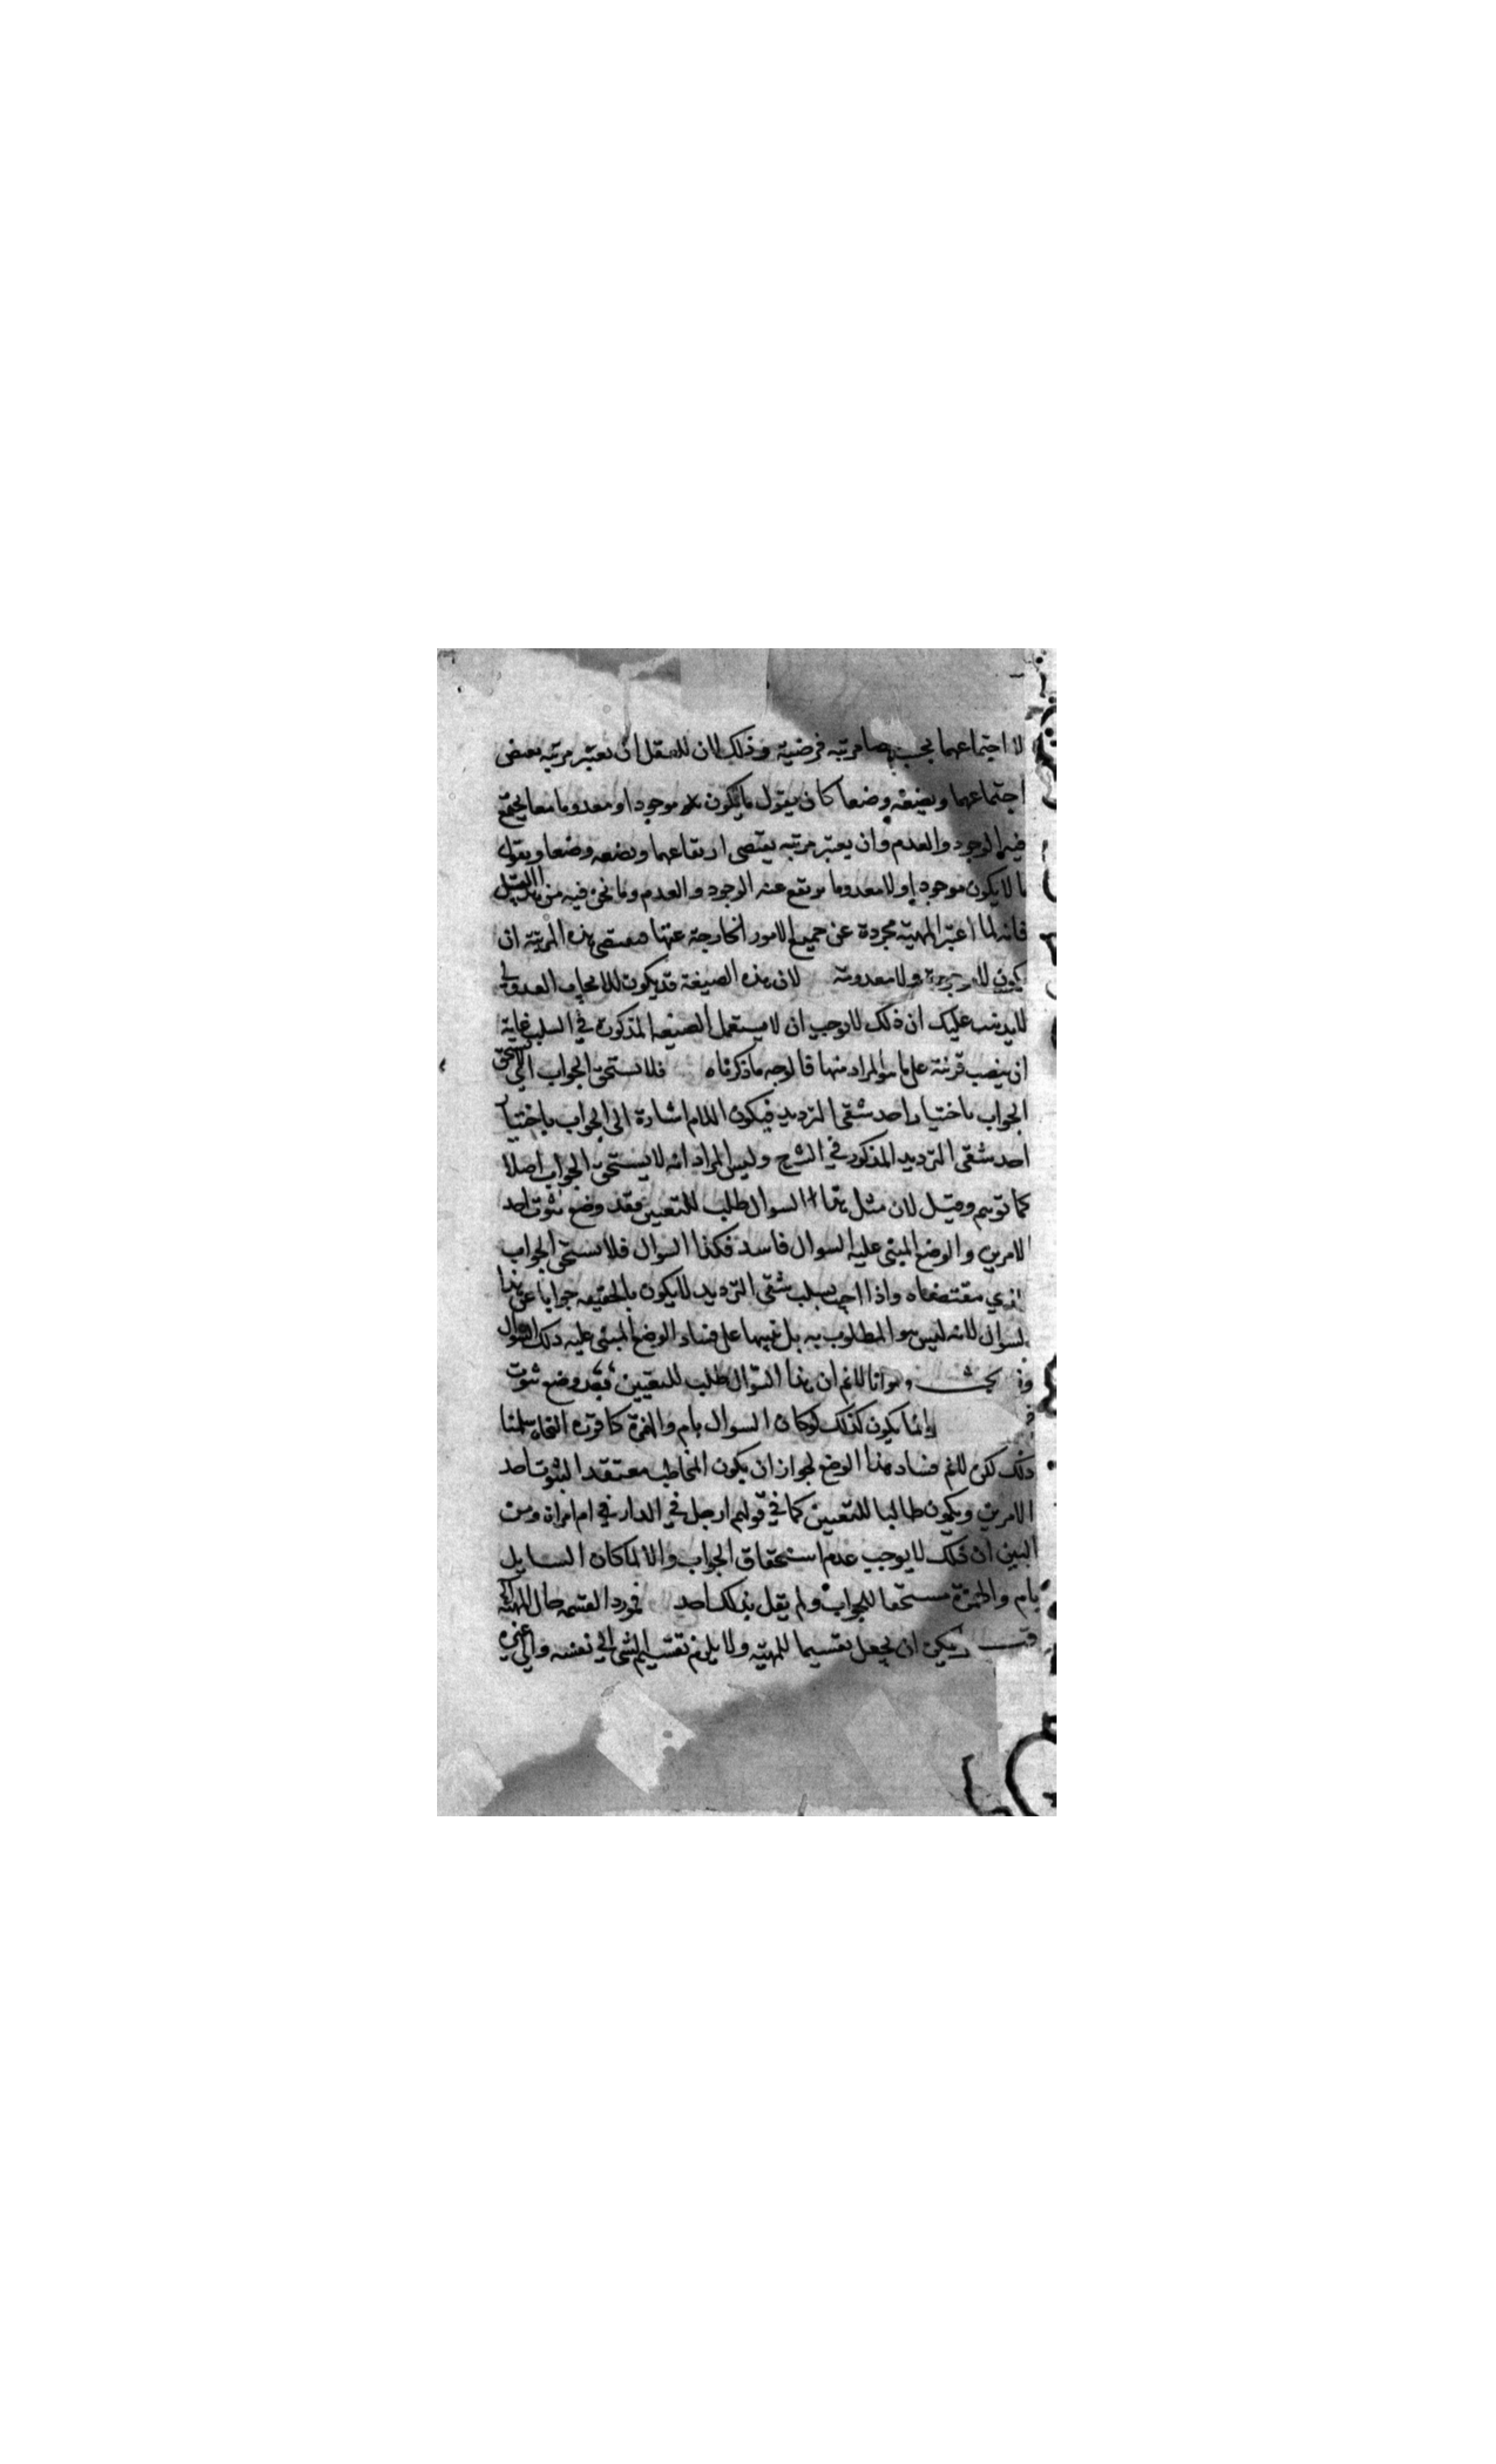 لا اجتماعهما بحسبها مرتبة فرضية وذلك لان للعقل ان يعتبر مرتبة بعض
اجتماعهما ويضعه وضعا كان يقول ما يكون موجودا ومعدوما معا يجتمع
فيه الوجود والعدم وان يعتبر مرتبه يقتضى ارتفاعهما ويضعه وضعا ويقول
ما لا يكون موجودا ولا معدوما يرتفع عنه الوجود والعدم وما نحن فيه من هذا القبيل
فانه لما اعتبر المهية مجردة عن جميع الامور الخارجة عنها فمقتضى هذه المرتبة ان
يكون لا موجودة ولا معدومة لان هذه الصيغة قد يكون للايجاب العدولى
لا يذهب عليك ان ذلك لا يوجب ان لا يستعمل الصيغه المذكورة في السلب غاية
ان ينصب قرينة على ما هو المراد منها فالوجه ما ذكرناه فلا يستحق الجواب اى لا يستحق
الجواب باختيار احد شقى الترديد فيكون اللام اشارة الى الجواب باختيار
احد شقى الترديد المذكور في الشرح وليس المراد انه لا يستحق الجواب اصلا
كما توهم وقيل لان مثل هذا السوال طلب للتعيين فقد وضع ثبوت احد
الامرين والوضع المبنى عليه السوال فاسد فكذا السوال فلا يستحق الجواب
الذي مقتضاه واذا اجيب بسلب شقى الترديد لا يكون بالحقيقه جوابا عن هذا
السوال لانه ليس هو المطلوب به بل تنبيها على فساد الوضع المبنى عليه ذلك السوال
وفيه بحث وهو انا لا نم ان هذا السؤال طلب للتعيين فقد وضع ثبوت
وانما يكون كذلك لو كان السوال بام والهمزة كما قرره النحاة سلمنا
ذلك لكن لا نم فساد هذا الوضع لجواز ان يكون المخاطب معتقدا لثبوت احد
الامرين ويكون طالبا للتعيين كما في قولهم ارجل في الدار في ام امراة ومن
البين ان ذلك لا يوجب عدم استحقاق الجواب والا لما كان السايل
بام والهمزة مستحقا للجواب ولم يقل بذلك احد فمورد القسمه حال المهية
يمكن ان يجعل تقسيما للمهية ولا يلزم تقسيم الشى الى نفسه والى غيره